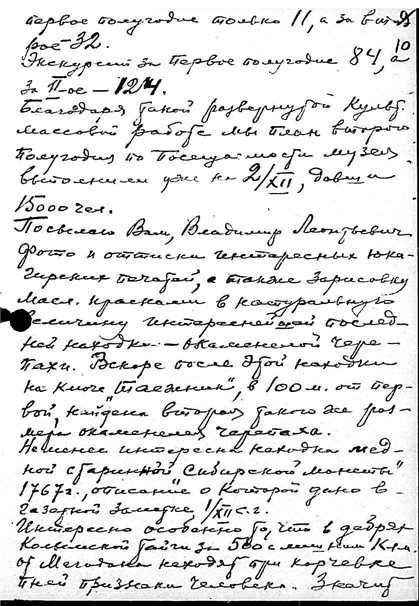 первое полугодие только 11, а за вто-
рое - 32.
10
Экскурсий за первое полугодие 84, а
за II-ое - 124.
Благодаря такой развернутой культ.
массовой работе мы план второго
полугодия по посещаемости музея
выполнили уже на 2/XII, давши
15000 чел.
Посылаю Вам, Владимир Леонтьевич
фото и оттиски интересных юка-
гирских печатей, а также зарисовку
масл. красками в натуральную
величину интереснейшей послед-
ней находки - окаменелой чере-
пахи. Вскоре после этой находки
на ключе "Таежник", в 100 м. от пер-
вой, найдена вторая такого же раз-
мера окаменелая черепаха.
Не менее интересна находка мед-
ной старинной Сибирской монеты"
1767 г., описание о которой дано в
газетной заметке 1/XII с.г.
Интересно особенно то, что в дебрях
Колымской тайги за 500 с лишним клм.
от Магадана находят при корчевке
пней признаки человека. Значит